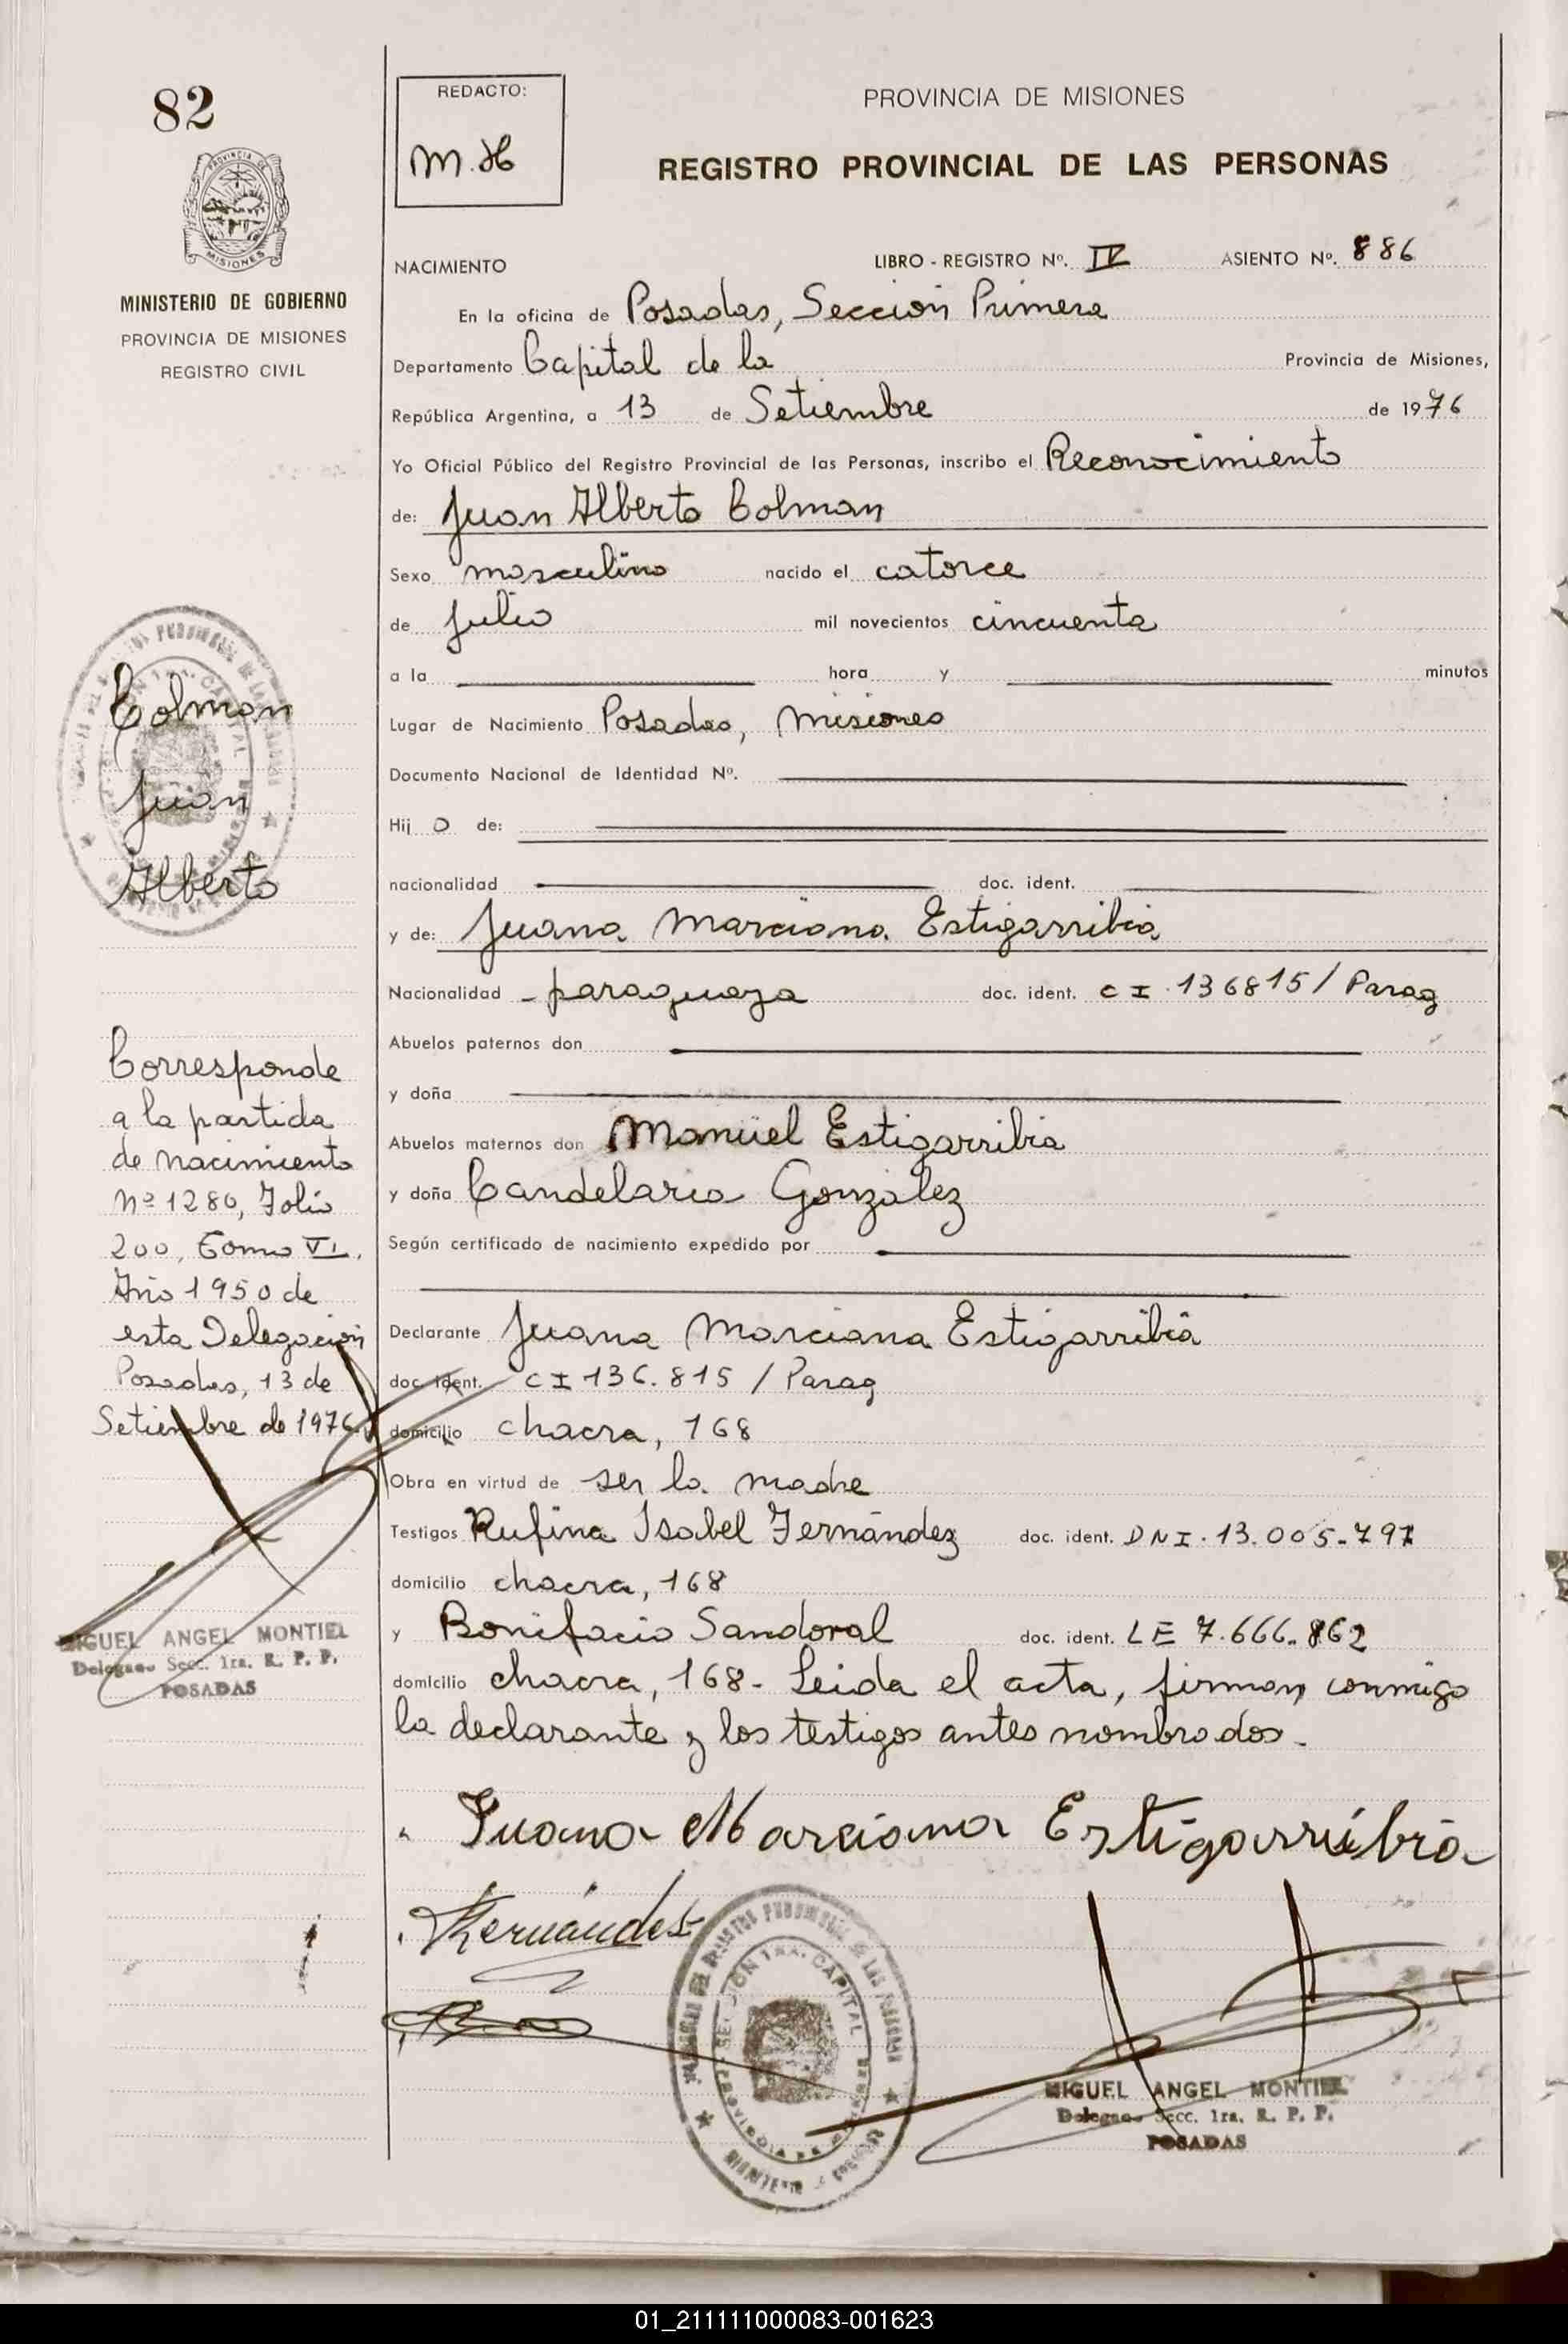 82
REDACTO:
M.H
PROVINCIA DE MISIONES
REGISTRO PROVINCIAL DE LAS PERSONAS
MISIONES
MINISTERIO DE GOBIERNO
PROVINCIA DE MISIONES
REGISTRO CIVIL
NACIMIENTO LIBRO - REGISTRO Nº. IV ASIENTO Nº. 886
En la oficina de Posadas, Sección Primera
Departamento Capital de la Provincia de Misiones,
República Argentina, a 13 de Setiembre de 1976
Yo Oficial Público del Registro Provincial de las Personas, inscribo el Reconocimiento
de: Juan Alberto Colman
Sexo masculino nacido el catorce
de julio mil novecientos cincuenta
a la hora y minutos
Lugar de Nacimiento Posadas, Misiones
Documento Nacional de Identidad Nº.
Hij o de:
nacionalidad doc. ident.
y de: Juana Marciana Estigarribia
Nacionalidad - paraguaya doc. ident. CI. 136815 / Parag
Abuelos paternos don
y doña
Abuelos maternos don Manuel Estigarribia
y doña Candelaria González
Según certificado de nacimiento expedido por
Declarante Juana Marciana Estigarribia
doc. ident. CI 136.815 / Parag
domicilio chacra, 168
Obra en virtud de ser la madre
Testigos Rufina Isabel Fernández doc. ident. DNI. 13.005.797
domicilio chacra, 168
y Bonifacio Sandoval doc. ident. LE 7.666.862
domicilio chacra, 168- Leida el acta, firman conmigo
la declarante y los testigos antes nombrados.
Juana Marciana Estigarribia
Fernández
SECCION 1ra. CAPITAL
MIGUEL ANGEL MONTIEL
Delegado Secc. 1ra. R. P. P.
POSADAS
Colman
Juan
Alberto
Corresponde
a la partida
de nacimiento
Nº 1280, Folio
200, Tomo VI,
Año 1950 de
esta Delegación
Posadas, 13 de
Setiembre de 1976
MIGUEL ANGEL MONTIEL
Delegado Secc. 1ra. R. P. P.
POSADAS
01_211111000083-001623